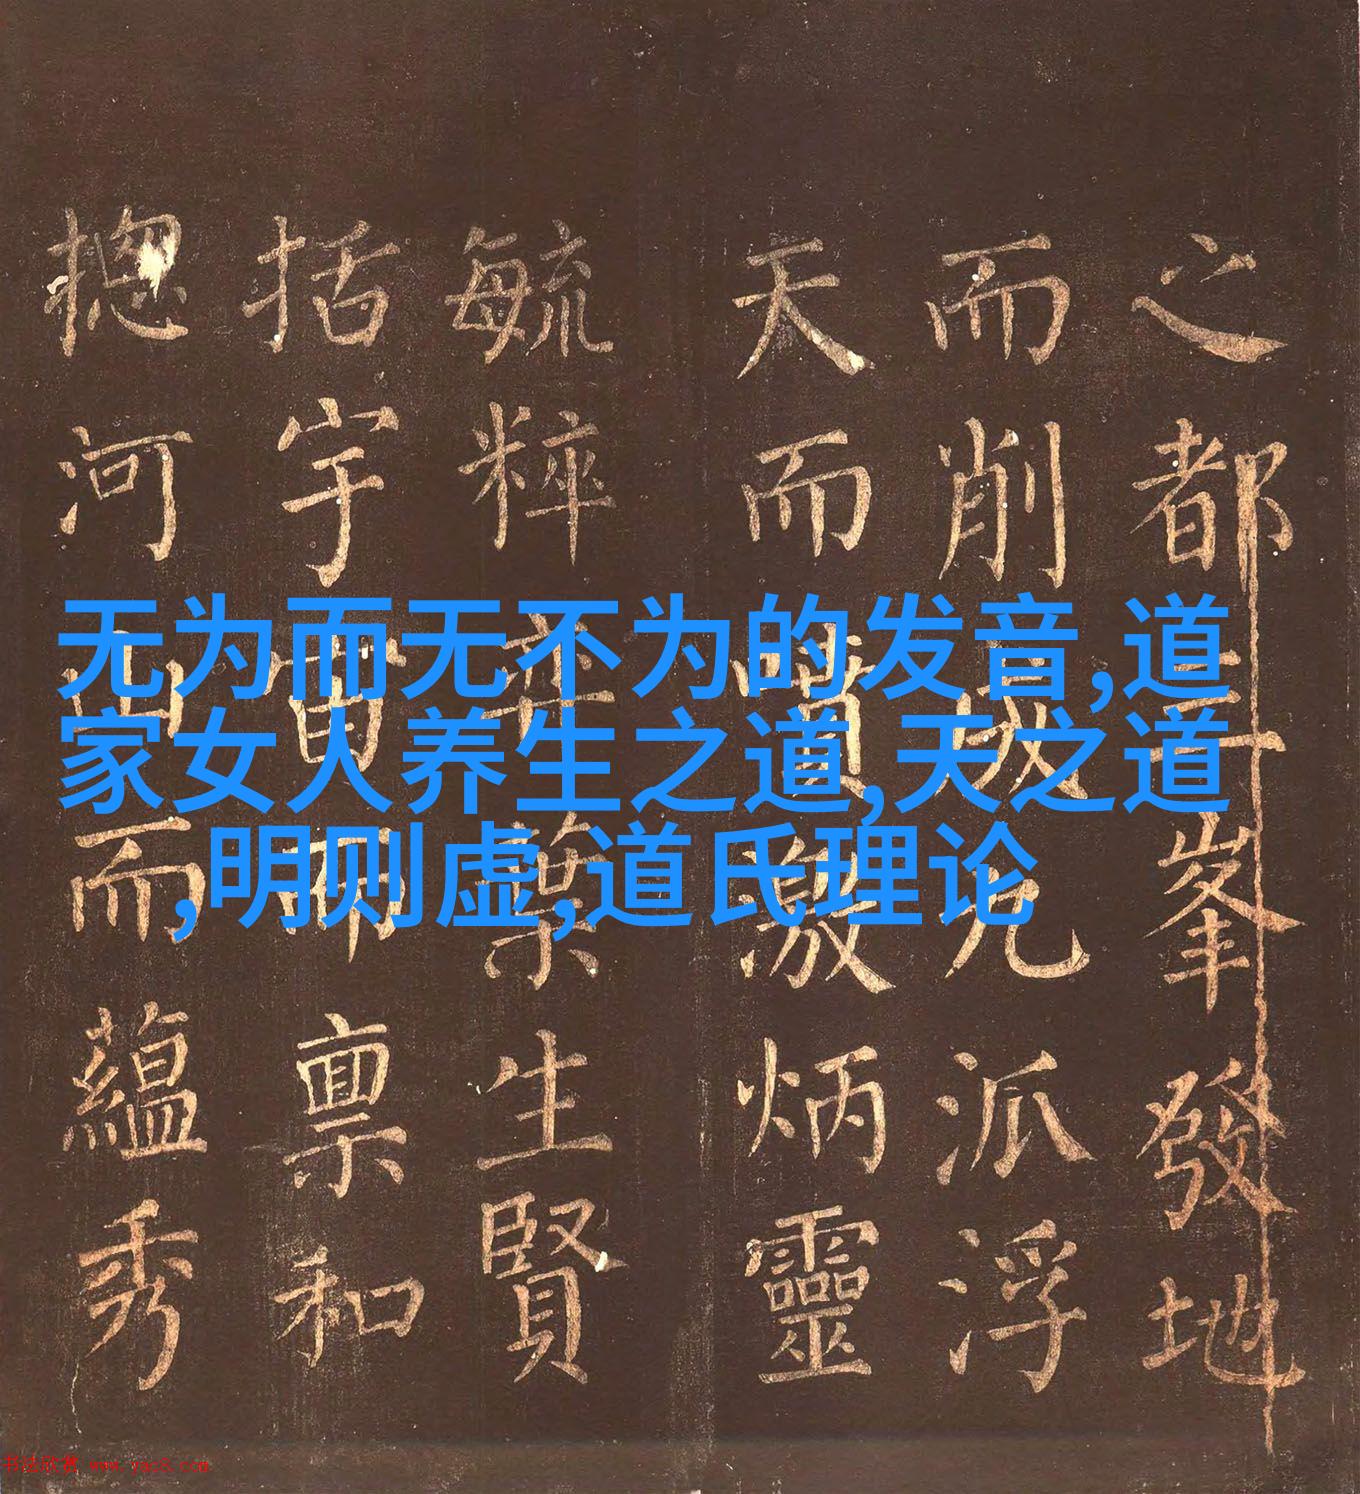 无为而无不为的发音,道
家女人养生之道,天之道
,明则虚,道氏理论
之都三峯發地
而削成九派浮
天而噴激炳靈
毓粹弈葉生賢
括宇宙而稟和
摠河山而蘊秀
书法欣赏 www.yac8.com